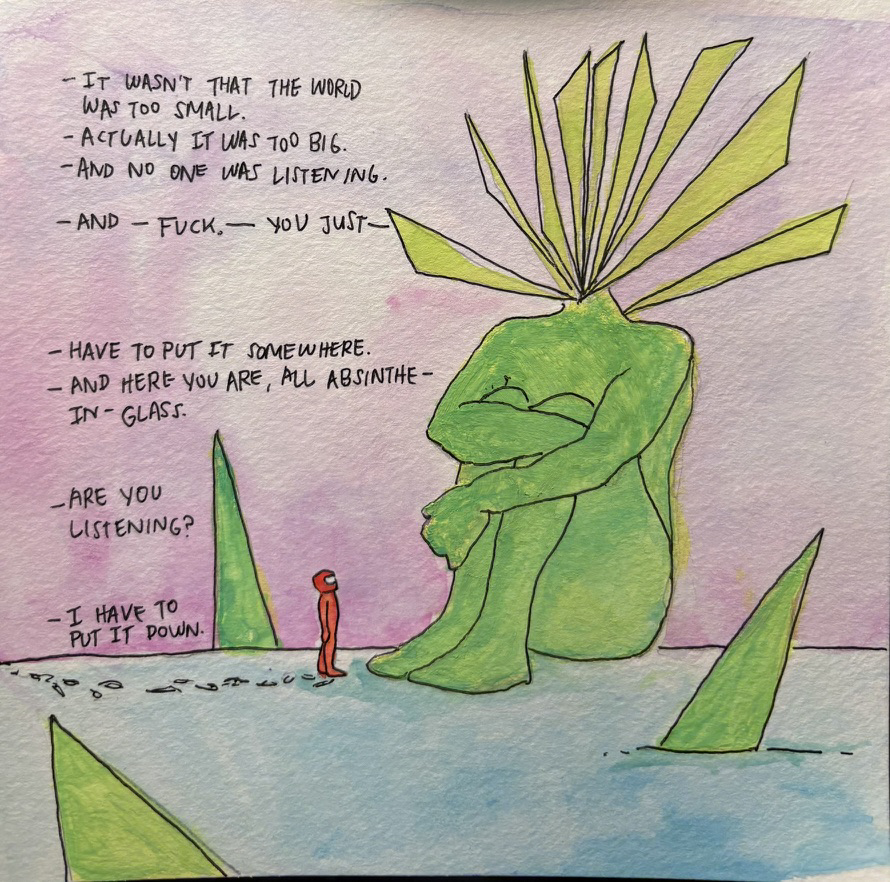 - IT WASN'T THAT THE WORLD
WAS TOO SMALL.
- ACTUALLY IT WAS TOO BIG.
- AND NO ONE WAS LISTENING.
- AND - FUCK. - YOU JUST -
- HAVE TO PUT IT SOMEWHERE.
- AND HERE YOU ARE, ALL ABSINTHE -
IN - GLASS.
- ARE YOU
LISTENING?
- I HAVE TO
PUT IT DOWN.